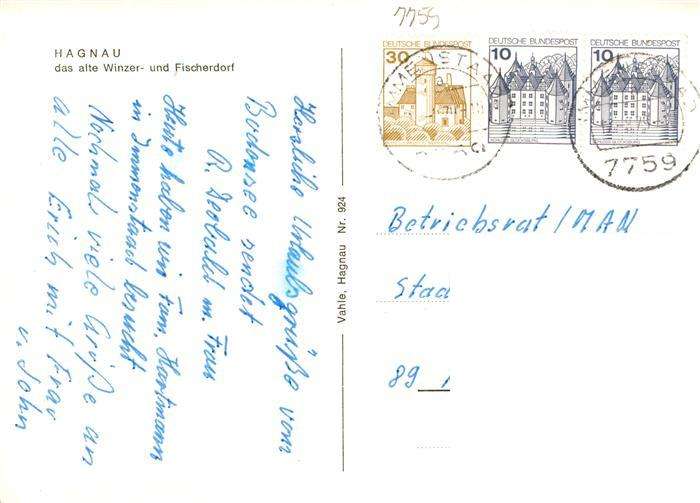 7759
HAGNAU
das alte Winzer- und Fischerdorf
DEUTSCHE BUNDESPOST
30
DEUTSCHE BUNDESPOST
10
DEUTSCHE BUNDESPOST
10
7759
Herzliche Urlaubsgrüße vom
Bodensee sendet
R. u. Frau
Heute haben wir Fam. Hartmann
in Immenstaad besucht
Nochmals viele Grüße an
alle Erich mit Frau
u. Sohn
Vahle, Hagnau Nr. 924
Betriebsrat/MAN
Staa
89